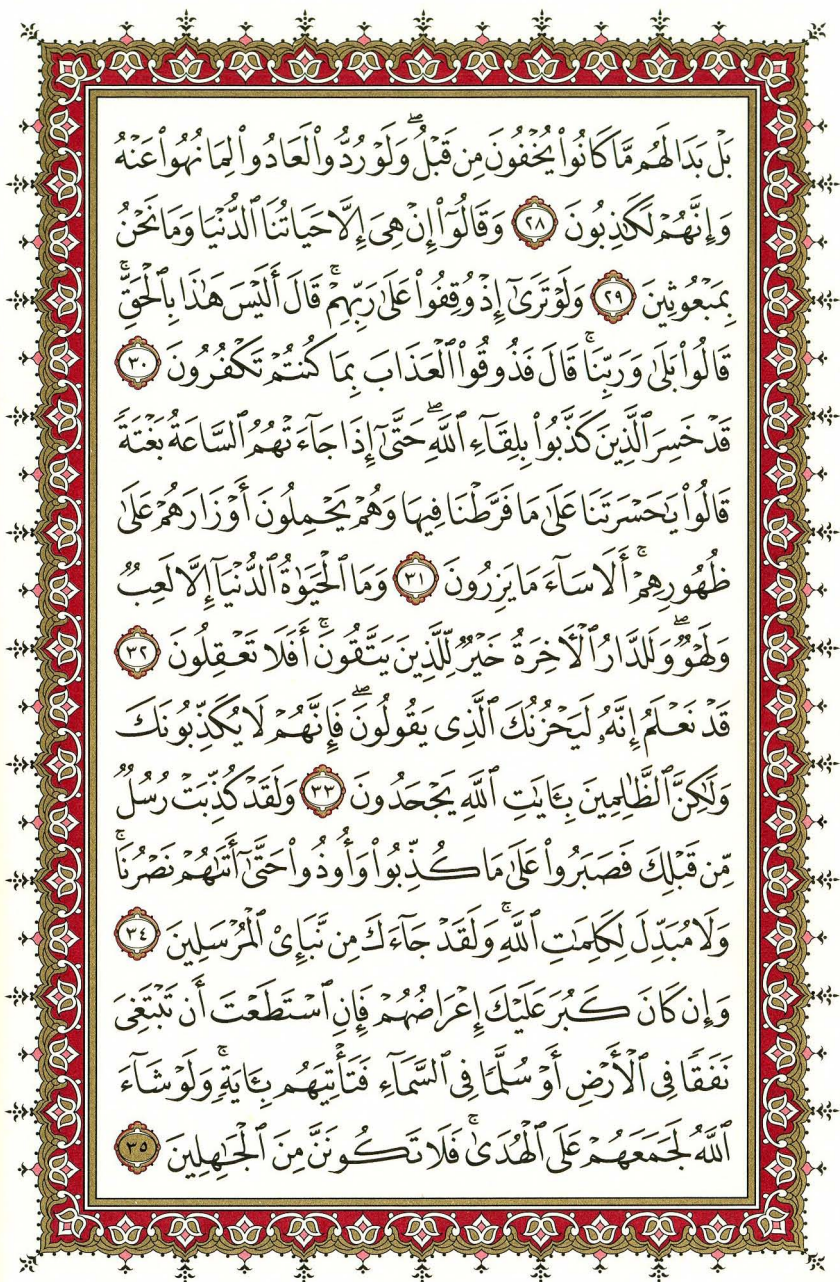 بَلْ بَدَا لَهُم مَّا كَانُوا۟ يُخْفُونَ مِن قَبْلُ ۖ وَلَوْ رُدُّوا۟ لَعَادُوا۟ لِمَا نُهُوا۟ عَنْهُ
وَإِنَّهُمْ لَكَـٰذِبُونَ ٢٨ وَقَالُوٓا۟ إِنْ هِىَ إِلَّا حَيَاتُنَا ٱلدُّنْيَا وَمَا نَحْنُ
بِمَبْعُوثِينَ ٢٩ وَلَوْ تَرَىٰٓ إِذْ وُقِفُوا۟ عَلَىٰ رَبِّهِمْ ۚ قَالَ أَلَيْسَ هَـٰذَا بِٱلْحَقِّ ۚ
قَالُوا۟ بَلَىٰ وَرَبِّنَا ۚ قَالَ فَذُوقُوا۟ ٱلْعَذَابَ بِمَا كُنتُمْ تَكْفُرُونَ ٣٠
قَدْ خَسِرَ ٱلَّذِينَ كَذَّبُوا۟ بِلِقَآءِ ٱللَّهِ ۖ حَتَّىٰٓ إِذَا جَآءَتْهُمُ ٱلسَّاعَةُ بَغْتَةً
قَالُوا۟ يَـٰحَسْرَتَنَا عَلَىٰ مَا فَرَّطْنَا فِيهَا وَهُمْ يَحْمِلُونَ أَوْزَارَهُمْ عَلَىٰ
ظُهُورِهِمْ ۚ أَلَا سَآءَ مَا يَزِرُونَ ٣١ وَمَا ٱلْحَيَوٰةُ ٱلدُّنْيَآ إِلَّا لَعِبٌ
وَلَهْوٌ ۖ وَلَلدَّارُ ٱلْـَٔاخِرَةُ خَيْرٌ لِّلَّذِينَ يَتَّقُونَ ۗ أَفَلَا تَعْقِلُونَ ٣٢
قَدْ نَعْلَمُ إِنَّهُۥ لَيَحْزُنُكَ ٱلَّذِى يَقُولُونَ ۖ فَإِنَّهُمْ لَا يُكَذِّبُونَكَ
وَلَـٰكِنَّ ٱلظَّـٰلِمِينَ بِـَٔايَـٰتِ ٱللَّهِ يَجْحَدُونَ ٣٣ وَلَقَدْ كُذِّبَتْ رُسُلٌ
مِّن قَبْلِكَ فَصَبَرُوا۟ عَلَىٰ مَا كُذِّبُوا۟ وَأُوذُوا۟ حَتَّىٰٓ أَتَىٰهُمْ نَصْرُنَا ۚ
وَلَا مُبَدِّلَ لِكَلِمَـٰتِ ٱللَّهِ ۚ وَلَقَدْ جَآءَكَ مِن نَّبَإِى۟ ٱلْمُرْسَلِينَ ٣٤
وَإِن كَانَ كَبُرَ عَلَيْكَ إِعْرَاضُهُمْ فَإِنِ ٱسْتَطَعْتَ أَن تَبْتَغِىَ
نَفَقًا فِى ٱلْأَرْضِ أَوْ سُلَّمًا فِى ٱلسَّمَآءِ فَتَأْتِيَهُم بِـَٔايَةٍ ۚ وَلَوْ شَآءَ
ٱللَّهُ لَجَمَعَهُمْ عَلَى ٱلْهُدَىٰ ۚ فَلَا تَكُونَنَّ مِنَ ٱلْجَـٰهِلِينَ ٣٥